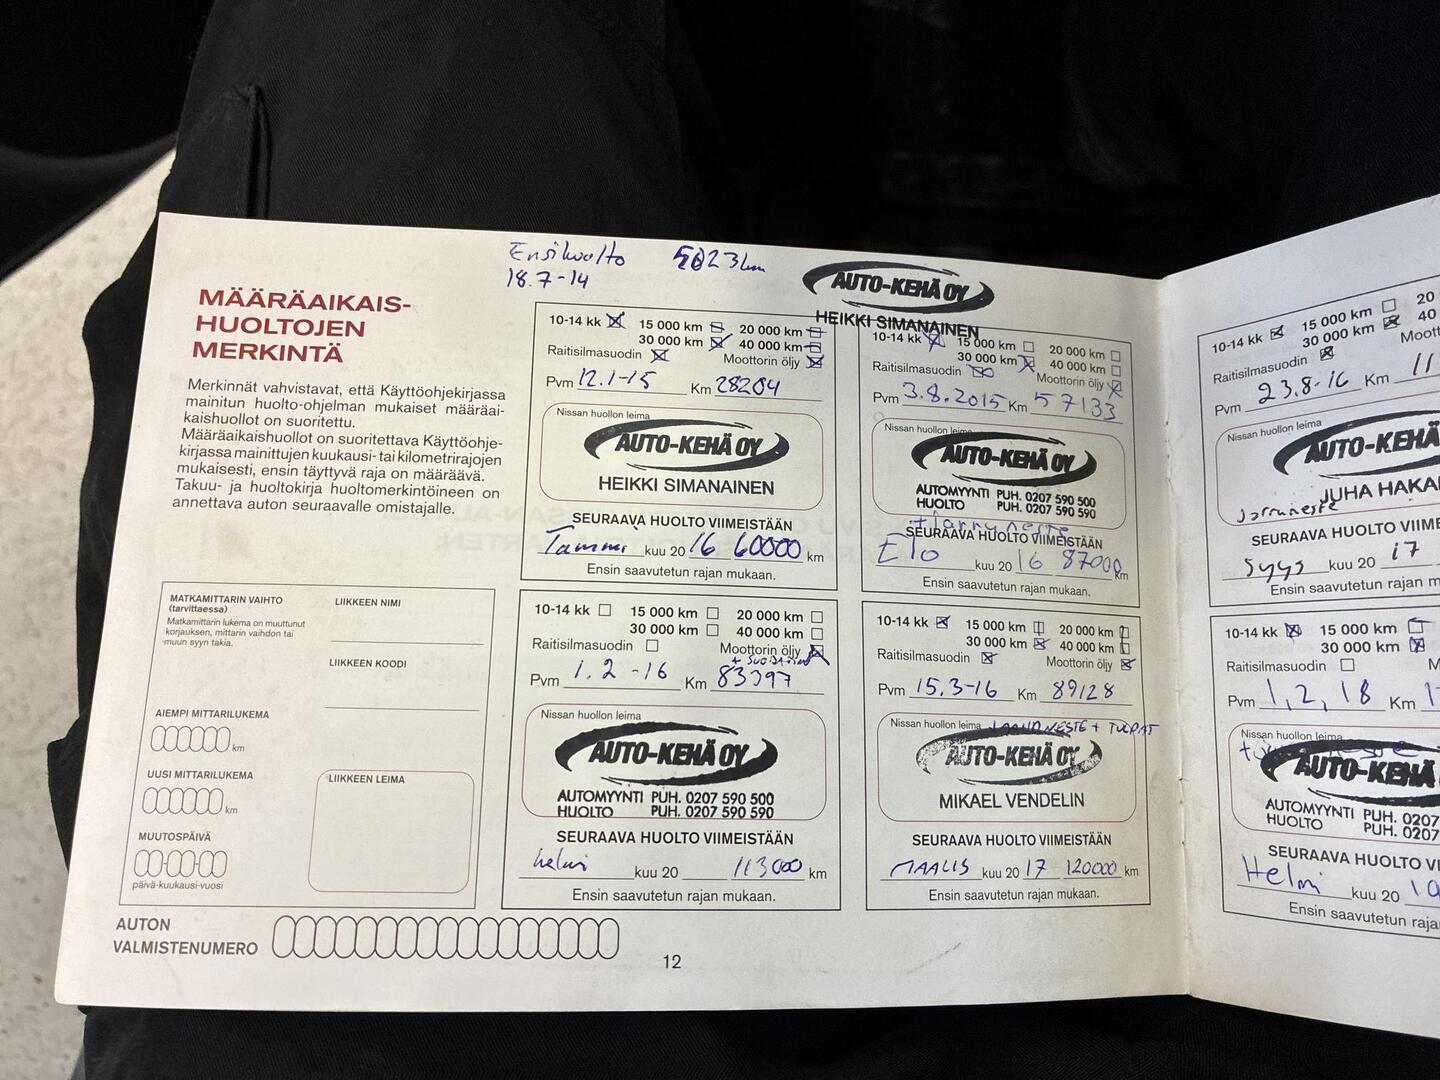 Ensihuolto 5023km
18.7-14
AUTO-KEHÄ OY
HEIKKI SIMANAINEN
MÄÄRÄAIKAIS-
HUOLTOJEN
MERKINTÄ
Merkinnät vahvistavat, että Käyttöohjekirjassa
mainitun huolto-ohjelman mukaiset määräai-
kaishuollot on suoritettu.
Määräaikaishuollot on suoritettava Käyttöohje-
kirjassa mainittujen kuukausi- tai kilometrirajojen
mukaisesti, ensin täyttyvä raja on määräävä.
Takuu- ja huoltokirja huoltomerkintöineen on
annettava auton seuraavalle omistajalle.
10-14 kk 15 000 km 20 000 km
30 000 km 40 000 km
Raitisilmasuodin Moottorin öljy
Pvm 12.1-15 Km 28204
Nissan huollon leima
AUTO-KEHÄ OY
HEIKKI SIMANAINEN
SEURAAVA HUOLTO VIIMEISTÄÄN
Tammi kuu 20 16 60000 km
Ensin saavutetun rajan mukaan.
10-14 kk 15 000 km 20 000 km
30 000 km 40 000 km
Raitisilmasuodin Moottorin öljy
Pvm 3.8.2015 Km 57133
Nissan huollon leima
AUTO-KEHÄ OY
AUTOMYYNTI PUH. 0207 590 500
HUOLTO PUH. 0207 590 590
+jarruneste
SEURAAVA HUOLTO VIIMEISTÄÄN
Elo kuu 20 16 87000 km
Ensin saavutetun rajan mukaan.
10-14 kk 15 000 km 20
30 000 km
Raitisilmasuodin
Pvm 23.8-16 Km 11
Nissan huollon leima
AUTO-KEHÄ
JUHA HAKA
Jarruneste
SEURAAVA HUOLTO VIIMEISTÄ
Syys kuu 20 17
Ensin saavutetun rajan m
MATKAMITTARIN VAIHTO
(tarvittaessa)
Matkamittarin lukema on muuttunut
korjauksen, mittarin vaihdon tai
muun syyn takia.
LIIKKEEN NIMI
LIIKKEEN KOODI
AIEMPI MITTARILUKEMA
km
UUSI MITTARILUKEMA
km
MUUTOSPÄIVÄ
päivä-kuukausi-vuosi
LIIKKEEN LEIMA
10-14 kk 15 000 km 20 000 km
30 000 km 40 000 km
Raitisilmasuodin Moottorin öljy
+ SUODATIN
Pvm 1.2-16 Km 83397
Nissan huollon leima
AUTO-KEHÄ OY
AUTOMYYNTI PUH. 0207 590 500
HUOLTO PUH. 0207 590 590
SEURAAVA HUOLTO VIIMEISTÄÄN
helmi kuu 20 113000 km
Ensin saavutetun rajan mukaan.
10-14 kk 15 000 km 20 000 km
30 000 km 40 000 km
Raitisilmasuodin Moottorin öljy
Pvm 15.3-16 Km 89128
Nissan huollon leima + TULPAT
AUTO-KEHÄ OY
MIKAEL VENDELIN
SEURAAVA HUOLTO VIIMEISTÄÄN
MAALIS kuu 20 17 120000 km
Ensin saavutetun rajan mukaan.
10-14 kk 15 000 km
30 000 km
Raitisilmasuodin M
Pvm 1,2,18 Km 1
Nissan huollon leima
AUTO-KEHÄ
AUTOMYYNTI PUH. 0207
HUOLTO PUH. 0207
SEURAAVA HUOLTO VI
Helmi kuu 20
Ensin saavutetun raja
AUTON
VALMISTENUMERO
12